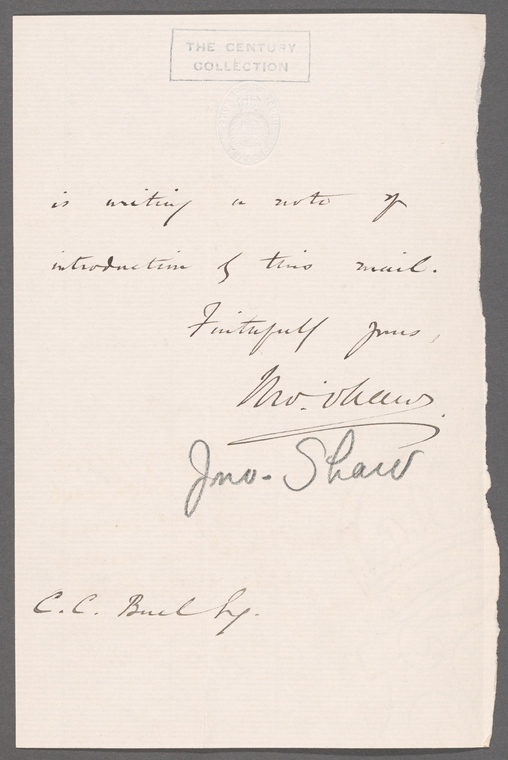 THE CENTURY
COLLECTION
is writing a note of
introduction by this mail.
Faithfully yours,
Jno. Shaw
Jno. Shaw
C. C. Buel Esq.